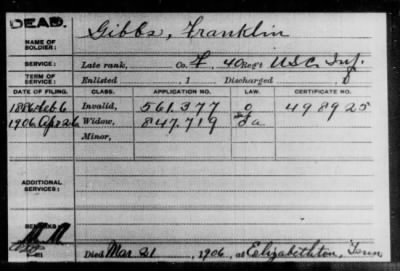 DEAD.
Gibbs, Franklin
NAME OF SOLDIER:
SERVICE: Late rank, Co. F, 40 Reg't U.S.C. Inf.
TERM OF SERVICE: Enlisted , 1 Discharged , 1
DATE OF FILING. CLASS. APPLICATION NO. LAW. CERTIFICATE NO.
1886 Feb 6 Invalid, 561.377 498925
1906 Apr 26 Widow, 847.719
Minor,
ADDITIONAL SERVICES:
REMARKS:
Died Mar 21, 1906, at Elizabethton, Tenn,